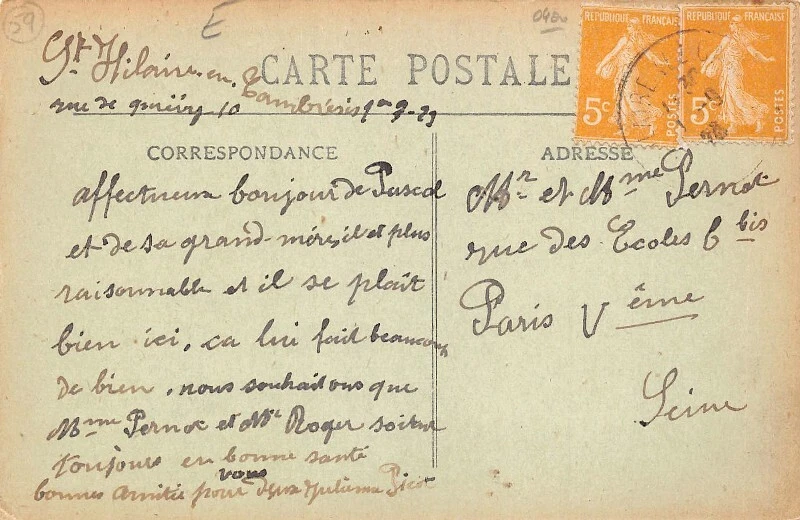 59
E
St Hilaire en Cambrésis 1er 9-23
rue de quiévy 10
CARTE POSTALE
REPUBLIQUE FRANÇAISE
5c
POSTES
REPUBLIQUE FRANÇAISE
5c
POSTES
CORRESPONDANCE
affectueux bonjour de Pascal
et de sa grand-mère, il et plus
raisonnable et il se plaît
bien ici, ça lui fait beaucoup
de bien, nous souhaitons que
Mme Pernot et Mr Roger soient
toujours en bonne santé
bonnes amitié pour vous deux Picot
ADRESSE
Mr et Mme Pernot
rue des Ecoles 6 bis
Paris Vème
Seine